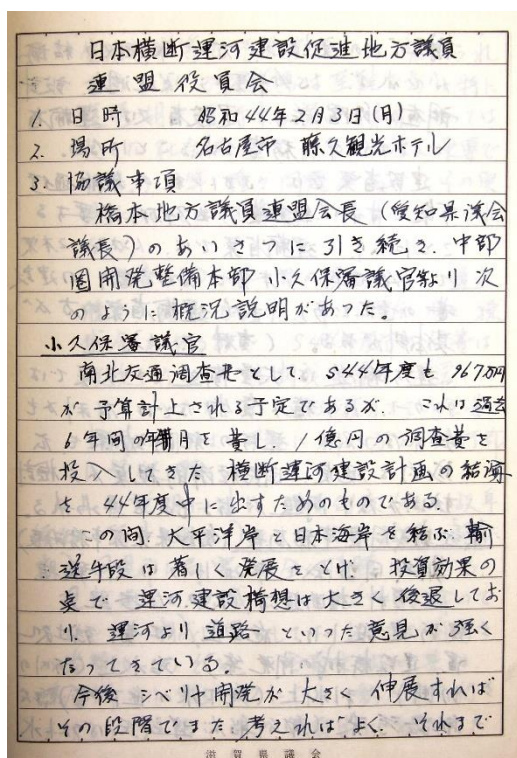 日本横断運河建設促進地方議員
連盟役員会
1. 日時 昭和44年2月3日(月)
2. 場所 名古屋市 藤久観光ホテル
3. 協議事項
橋本地方議員連盟会長(愛知県議会
議長)のあいさつに引き続き、中部
圏開発整備本部 小久保審議官より 次
のように概況説明があった。
小久保審議官
南北交通調査費として、S44年度も 967万円
が予算計上される予定であるが、これは過去
6年間の年月を費し、1億円の調査費を
投入してきた 横断運河建設計画の結論
を 44年度中に出すためのものである。
この間、太平洋岸と日本海岸を結ぶ輸
送手段は著しく発展をとげ、投資効果の
点で 運河建設構想は大きく後退してお
り、運河より道路といった意見が強く
なってきている。
今後 シベリヤ開発が大きく伸展すれば
その段階でまた考えればよく、それまで
滋賀県議会